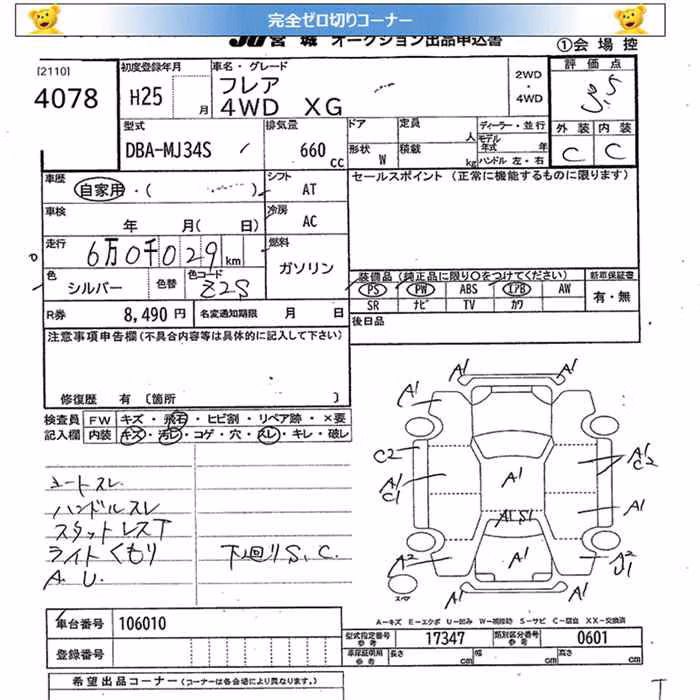 完全ゼロ切りコーナー
JU宮城 オークション出品申込書
①会場控
[2110]
4078
初度登録年月
H25 月
車名・グレード
フレア
4WD XG
2WD
・
4WD
評価点
3.5
型式
DBA-MJ34S
排気量
660 cc
ドア
定員 人
形状 W
積載 kg
ディーラー・並行
モデル年式 年式
ハンドル 左・右
外装 内装
C C
車歴
自家用・( )
シフト
AT
セールスポイント (正常に機能するものに限ります)
車検
年 月( 日)
冷房
AC
走行
6万0千029 km
燃料
ガソリン
色
シルバー
色替
色コード
Z2S
装備品(純正品に限り○をつけてください)
新車保証書
PS PW ABS エアB AW
有・無
SR ナビ TV カワ
R券 8,490円
名変通知期限 月 日
後日品
注意事項申告欄(不具合内容等は具体的に記入して下さい)
修復歴 有 〔箇所 〕
検査員 FW キズ・飛石・ヒビ割・リペア跡・×要
記入欄 内装 キズ・汚レ・コゲ・穴・スレ・キレ・破レ
シートスレ
ハンドルスレ
スタットレスT
ライトくもり 下回りS.C.
A.U.
A1 A1
A1 A1
C2 A1 C2
A1 C1 A1
A1 S1 A1
A2 A1 A2 U1
スペア
A-キズ E-エクボ U-凹み W-補修跡 S-サビ C-腐食 XX-交換済
車台番号 106010
型式指定番号 参考 17347 類別区分番号 参考 0601
登録番号
車庫証明用 参考 長さ cm 幅 cm 高さ cm
希望出品コーナー (コーナーは各会場により異なります。)